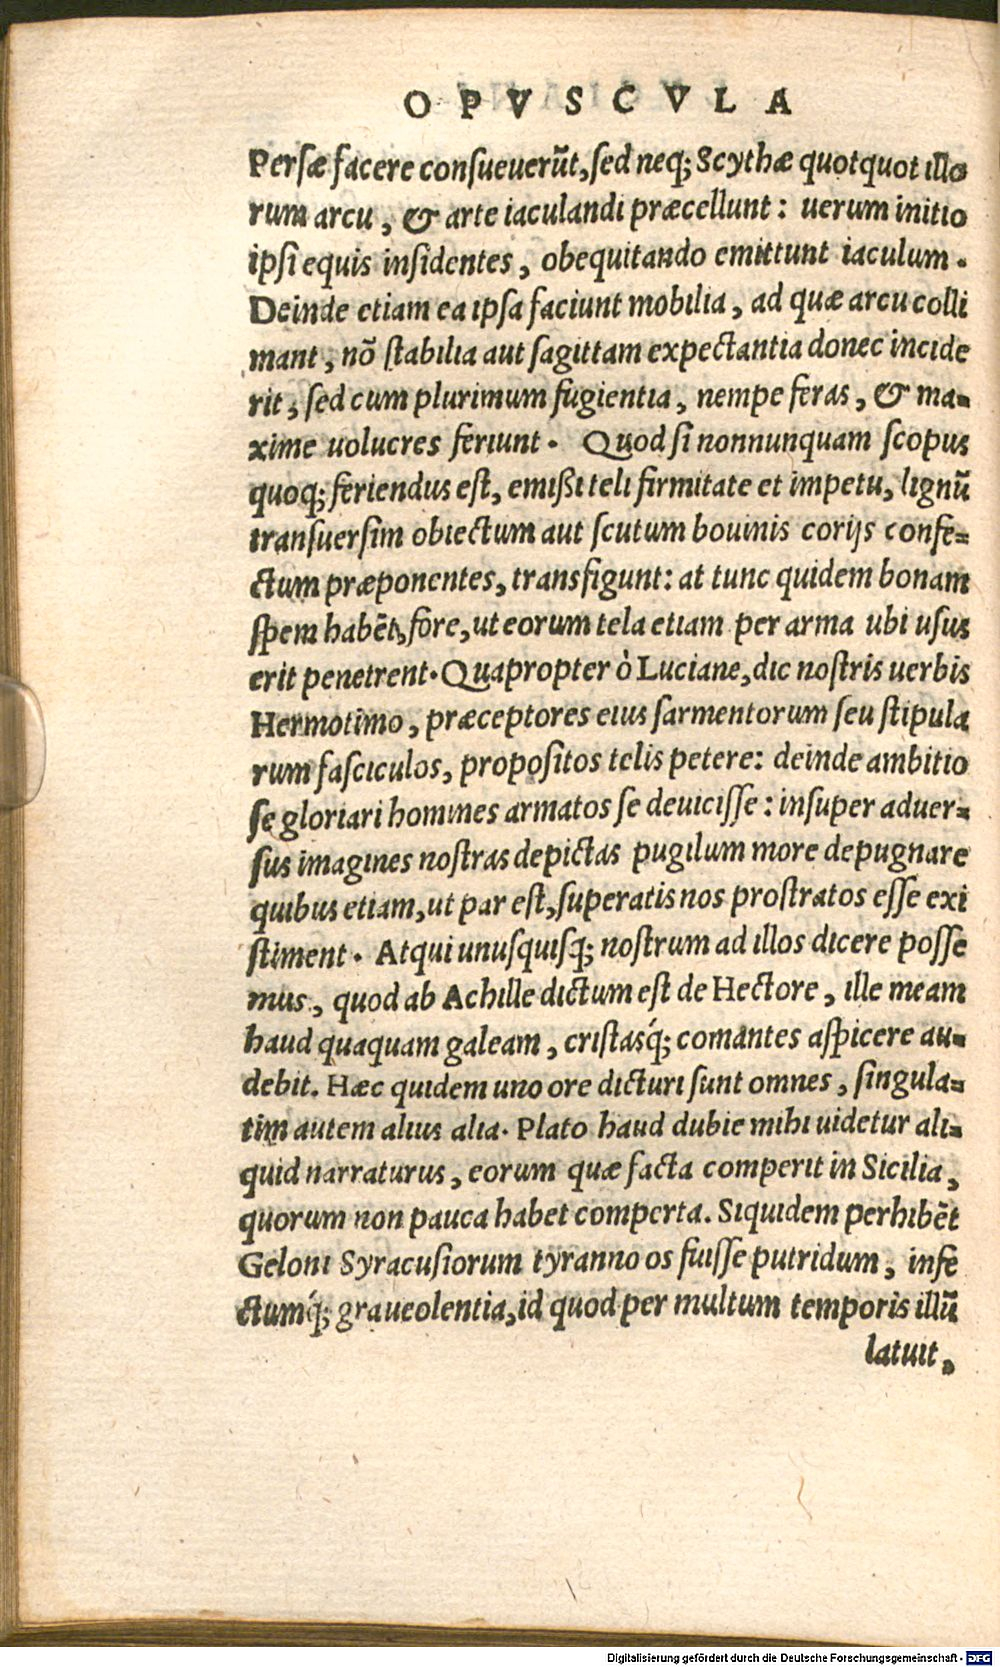 OPVSCVLA
Perſæ facere conſueuerūt, ſed neq; Scythæ quotquot illo
rum arcu, & arte iaculandi præcellunt: uerum initio
ipſi equis inſidentes, obequitando emittunt iaculum.
Deinde etiam ea ipſa faciunt mobilia, ad quæ arcu colli
mant, nō ſtabilia aut ſagittam expectantia donec incide
rit, ſed cum plurimum fugientia, nempe feras, & ma-
xime uolucres feriunt. Quod ſi nonnunquam ſcopus
quoq; feriendus eſt, emißi teli firmitate et impetu, lignū
tranſuerſim obiectum aut ſcutum bouinis corijs confe-
ctum præponentes, transfigunt: at tunc quidem bonam
ſpem habēt, fore, ut eorum tela etiam per arma ubi uſus
erit penetrent. Quapropter ò Luciane, dic noſtris uerbis
Hermotimo, præceptores eius ſarmentorum ſeu ſtipula
rum faſciculos, propoſitos telis petere: deinde ambitio
ſe gloriari homines armatos ſe deuiciſſe: inſuper aduer-
ſus imagines noſtras depictas pugilum more depugnare
quibus etiam, ut par eſt, ſuperatis nos proſtratos eſſe exi
ſtiment. Atqui unuſquiſq; noſtrum ad illos dicere poſſe
mus, quod ab Achille dictum eſt de Hectore, ille meam
haud quaquam galeam, criſtasq́; comantes aſpicere au-
debit. Hæc quidem uno ore dicturi ſunt omnes, ſingula-
tim autem alius alia. Plato haud dubie mihi uidetur ali-
quid narraturus, eorum quæ facta comperit in Sicilia,
quorum non pauca habet comperta. Siquidem perhibēt
Geloni Syracuſiorum tyranno os fuiſſe putridum, infe
ctumq́; graueolentia, id quod per multum temporis illū
latuit,
Digitalisierung gefördert durch die Deutsche Forschungsgemeinschaft - DFG